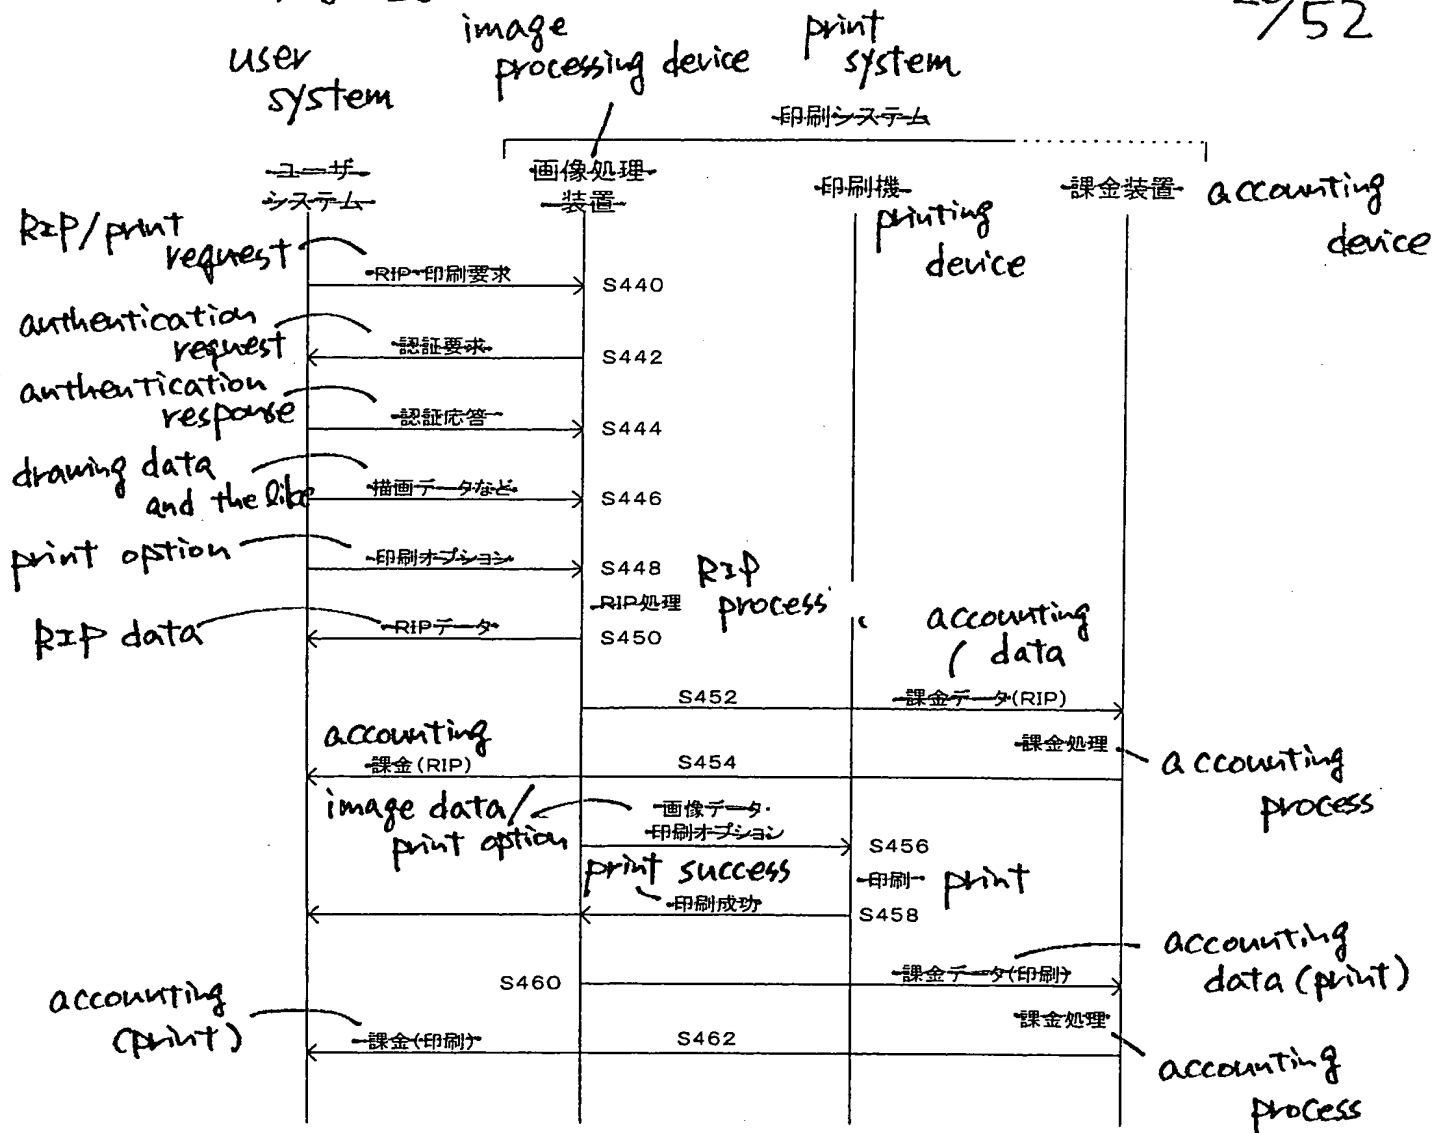 /52
user
system
image
processing device
print
system
印刷システム
ユーザ
システム
画像処理
装置
印刷機
printing
device
課金装置
accounting
device
RIP/print
request
RIP・印刷要求
S440
authentication
request
認証要求
S442
authentication
response
認証応答
S444
drawing data
and the like
描画データなど
S446
print option
印刷オプション
S448
RIP処理
RIP
process
RIP data
RIPデータ
S450
accounting
data
S452
課金データ(RIP)
課金処理
accounting
process
accounting
課金(RIP)
S454
image data/
print option
画像データ・
印刷オプション
S456
印刷
print
print success
印刷成功
S458
S460
課金データ(印刷)
accounting
data (print)
課金処理
accounting
process
accounting
(print)
課金(印刷)
S462